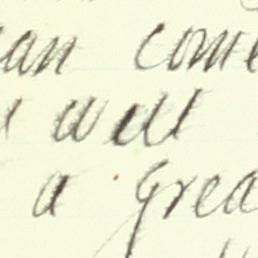 can come
will
a grea